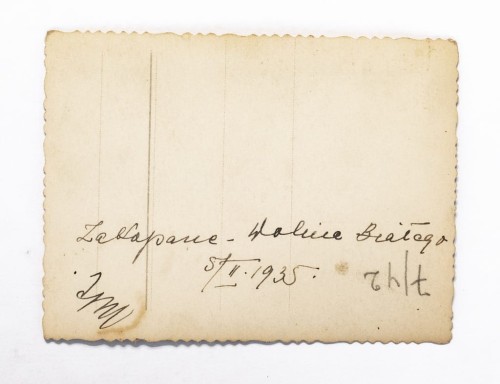 Zakopane - Dolina Białego
5/II. 1935.
7/42